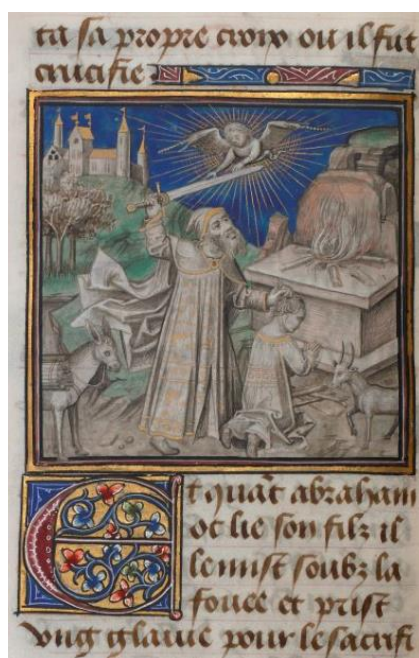 ta sa propre croix ou il fut
crucifie
Et quāt abraham
ot lie son filz il
le mist soubz la
fouee et prist
vng glaiue pour le sacrifi